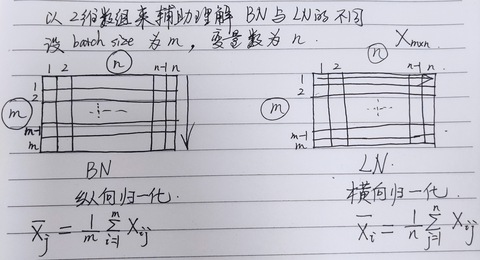 以2维数组来辅助理解 BN 与 LN 的不同
设 batch size 为 m, 变量数为 n. X_{m×n}
n
n
1 2 n-1 n
1 2 n-1 n
1
2
m
m-1
m
1
2
m
m-1
m
BN
LN.
纵向归一化.
横向归一化.
X̄_j = 1/m ∑_{i=1}^{m} X_{ij}
X̄_i = 1/n ∑_{j=1}^{n} X_{ij}